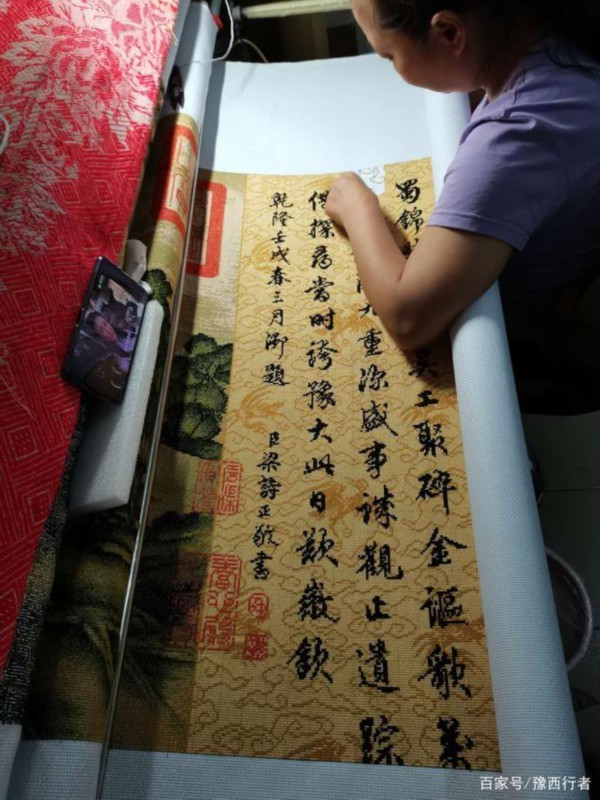 蜀錦 吳工聚碎金謳歌萬
九重深盛事誠觀止遺踪
借探尋當時誇豫大此日歎徽欽
乾隆壬戌春三月御題
臣梁詩正敬書
百家号/豫西行者